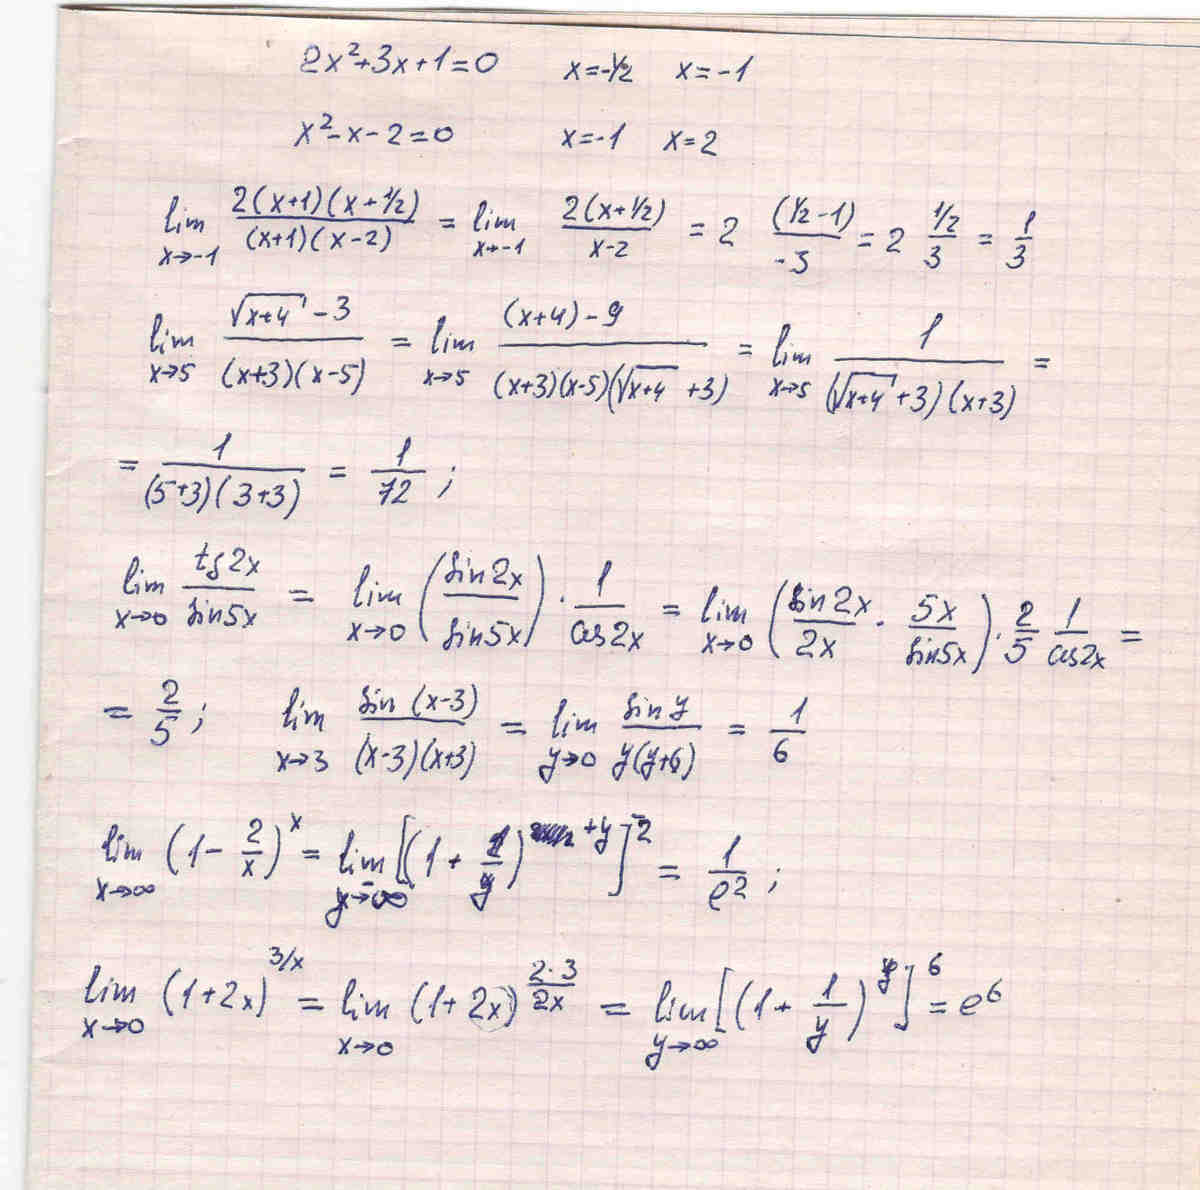 2x²+3x+1=0 x=-1/2 x=-1
x²-x-2=0 x=-1 x=2
lim x→-1 2(x+1)(x+1/2)/(x+1)(x-2) = lim x→-1 2(x+1/2)/x-2 = 2 (1/2-1)/-3 = 2 1/2/3 = 1/3
lim x→5 √x+4 -3/(x+3)(x-5) = lim x→5 (x+4)-9/(x+3)(x-5)(√x+4 +3) = lim x→5 1/(√x+4 +3)(x+3) =
= 1/(5+3)(3+3) = 1/72 ;
lim x→0 tg2x/sin5x = lim x→0 (sin2x/sin5x) · 1/cos2x = lim x→0 (sin2x/2x · 5x/sin5x) · 2/5 1/cos2x =
= 2/5 ; lim x→3 sin(x-3)/(x-3)(x+3) = lim y→0 sin y/y(y+6) = 1/6
lim x→∞ (1-2/x)^x = lim y→∞ [(1+1/y)^+y]^-2 = 1/e² ;
lim x→0 (1+2x)^3/x = lim x→0 (1+2x)^2·3/2x = lim y→∞ [(1+1/y)^y]^6 = e⁶